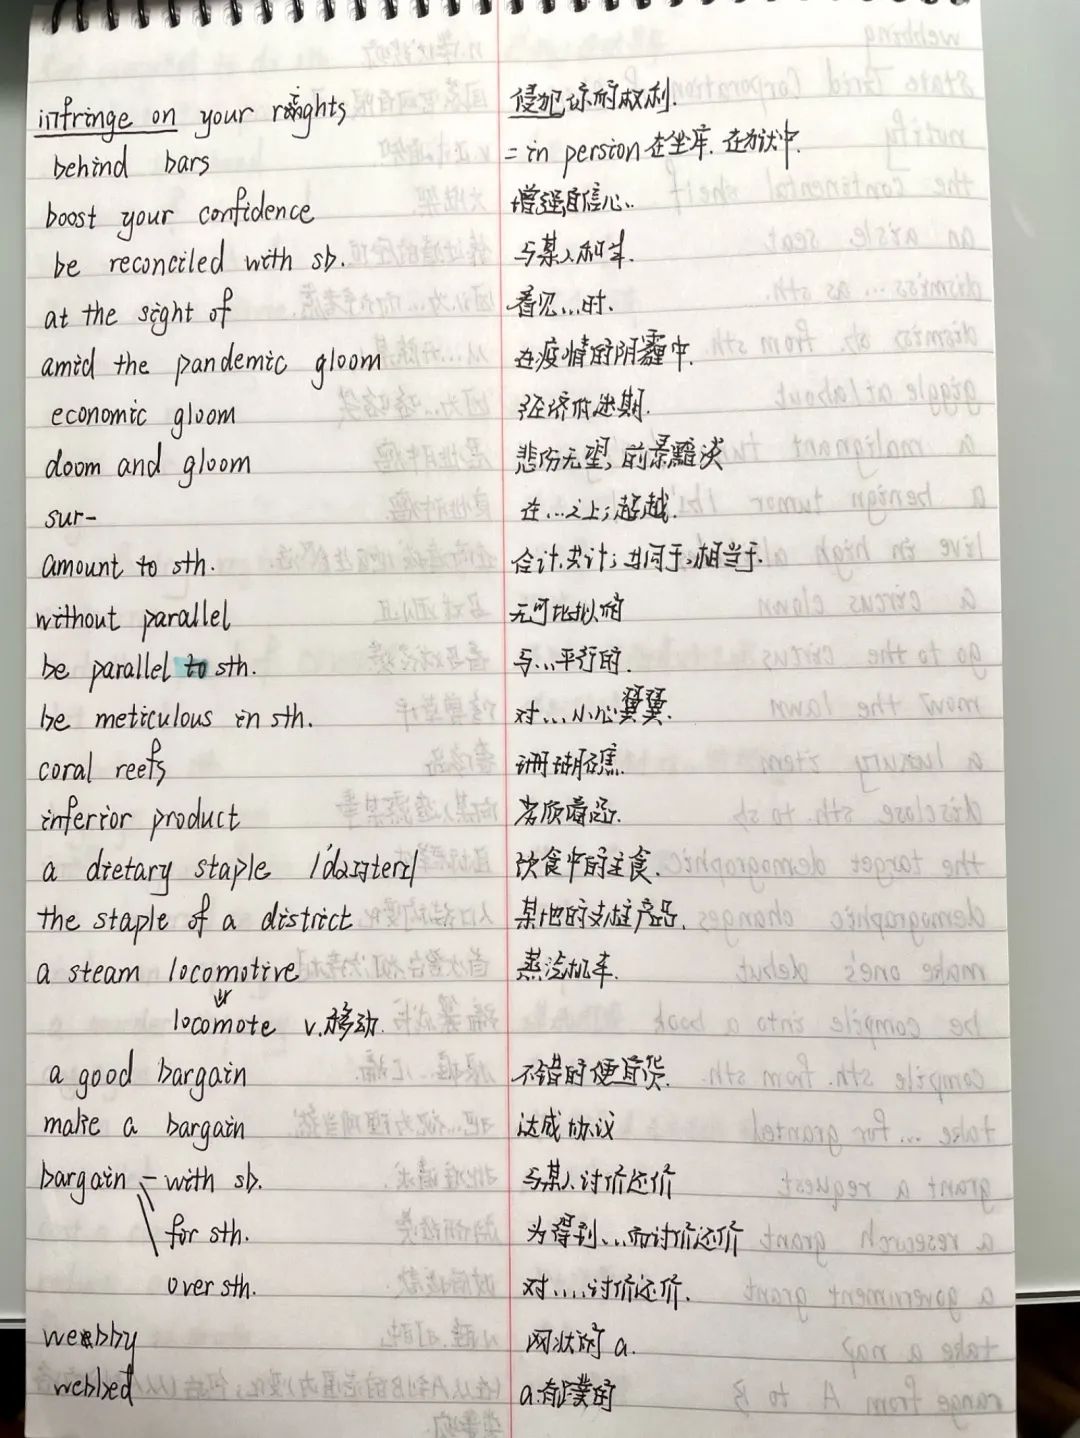 infringe on your rights 侵犯你的权利.
behind bars = in persion 在坐牢. 在狱中.
boost your confidence 增强自信心..
be reconciled with sb. 与某人和好.
at the sight of 看见...时.
amid the pandemic gloom 在疫情的阴霾中.
economic gloom 经济低迷期.
doom and gloom 悲伤无望, 前景黯淡
sur- 在...之上; 超越.
amount to sth. 合计.共计; 等同于,相当于.
without parallel 无可比拟的
be parallel to sth. 与...平行的.
be meticulous in sth. 对...小心翼翼.
coral reefs 珊瑚礁.
inferior product 劣质商品.
a dietary staple 饮食中的主食.
the staple of a district 某地的支柱产品.
a steam locomotive 蒸汽机车.
locomote v.移动.
a good bargain 不错的便宜货.
make a bargain 达成协议
bargain - with sb. 与某人讨价还价
for sth. 为得到...而讨价还价
over sth. 对....讨价还价.
webby 网状的 a.
webbed a.有蹼的